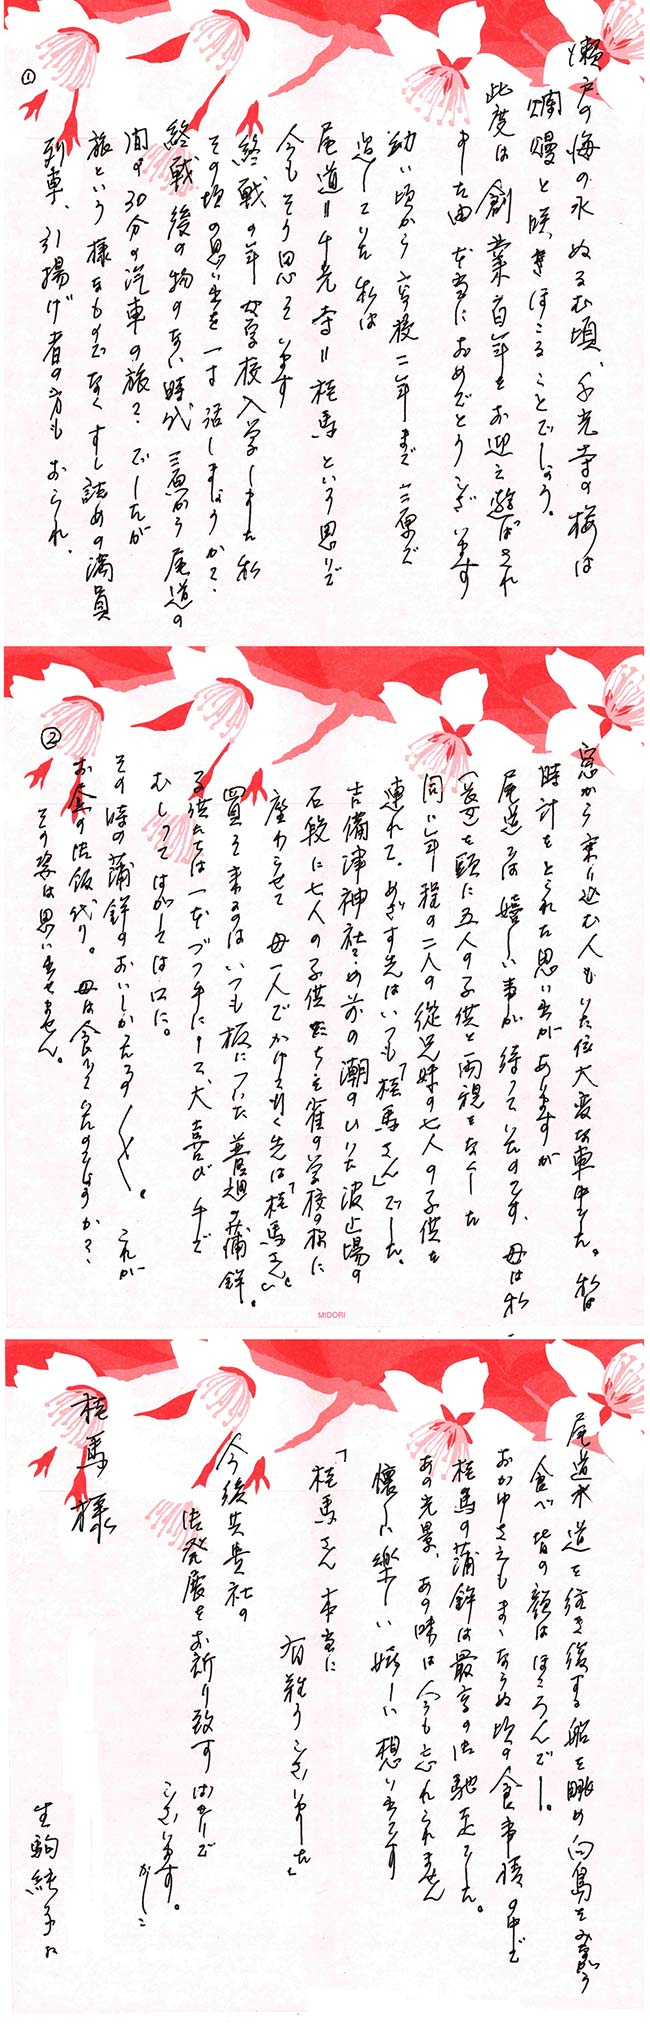 瀬戸の海の水ぬるむ頃、千光寺の桜は
爛熳と咲きほこることでしょう。
此度は創業百年をお迎え遊ばされ
ました由 本当におめでとうございます
幼い頃から高校二年まで三原で
過していた私は
尾道＝千光寺＝桂馬という思いで
今もそう思っています
終戦の年 女学校入学しました私
その頃の思い出を一寸話しましょうか？
終戦後の物のない時代 三原から尾道の
間の30分の汽車の旅？でしたが
旅という様なものでなくすし詰めの満員
列車、引揚げ者の方もおられ、
①
窓から乗り込む人もいた位大変な車中でした。私は
時計をとられた思い出がありますが
尾道では嬉しい事が待っていたのです、母は私
(長女)を頭に五人の子供と両親をなくした
同じ年程の二人の従兄妹の七人の子供を
連れて、めざす先はいつも「桂馬さん」でした。
吉備津神社？の前の潮のひいた波止場の
石段に七人の子供たちを雀の学校の様に
座わらせて 母一人でかけて行く先は「桂馬さん」
買って来るのはいつも板についた普通の蒲鉾。
子供たちは一本づつ手にして、大喜び 手で
むしってはがしては口に。
その時の蒲鉾のおいしかったこと
これが
お昼の御飯代り。母は食べていたのでしょうか？
その姿は思い出せません。
②
MIDORI
尾道水道を往き復する船を眺め向島をみながら
食べ皆の顔はほころんで。
おかゆさえもまゝならぬ頃の食事情の中で
桂馬の蒲鉾は最高の御馳走でした。
あの光景、あの味は今も忘れられません
懐しい楽しい嬉しい想い出です
「桂馬さん 本当に
有難うございました」
今後共貴社の
御発展をお祈り致すばかりで
ございます。
かしこ
生駒純子
桂馬様